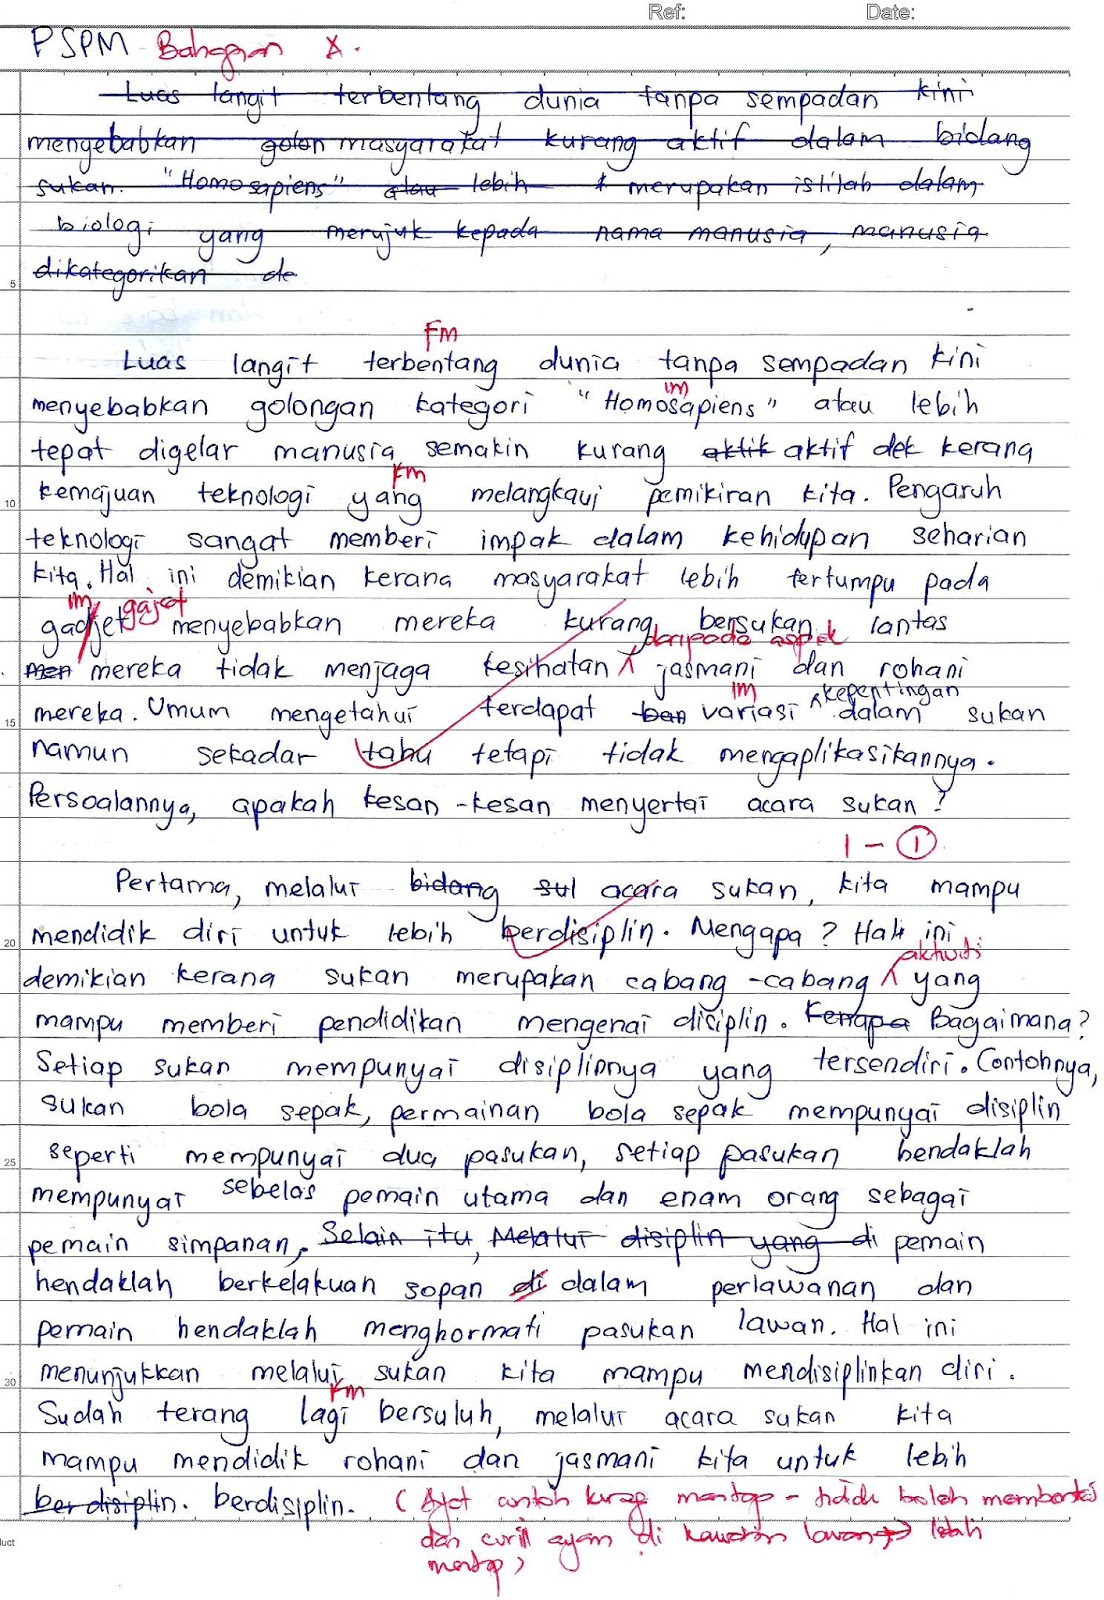 Ref: Date:
PSPM Bahagian A.
Luas langit terbentang dunia tanpa sempadan kini
menyebabkan golon masyarakat kurang aktif dalam bidang
sukan. "Homosapiens" atau lebih merupakan istilah dalam
biologi yang merujuk kepada nama manusia, manusia
dikategorikan de
5
FM
Luas langit terbentang dunia tanpa sempadan kini
im
menyebabkan golongan kategori "Homosapiens" atau lebih
tepat digelar manusia semakin kurang aktik aktif dek kerana
km
10 kemajuan teknologi yang melangkaui pemikiran kita. Pengaruh
teknologi sangat memberi impak dalam kehidupan seharian
kita. Hal ini demikian kerana masyarakat lebih tertumpu pada
im gajet
gadjet menyebabkan mereka kurang bersukan lantas
daripada aspek
men mereka tidak menjaga kesihatan jasmani dan rohani
im kepentingan
15 mereka. Umum mengetahui terdapat ban variasi dalam sukan
namun sekadar tahu tetapi tidak mengaplikasikannya.
Persoalannya, apakah kesan-kesan menyertai acara sukan?
1 - 1
Pertama, melalui bidang sul acara sukan, kita mampu
20 mendidik diri untuk lebih berdisiplin. Mengapa? Hal ini
aktiviti
demikian kerana sukan merupakan cabang-cabang yang
mampu memberi pendidikan mengenai disiplin. Kenapa Bagaimana?
Setiap sukan mempunyai disiplinnya yang tersendiri. Contohnya,
sukan bola sepak, permainan bola sepak mempunyai disiplin
25 seperti mempunyai dua pasukan, setiap pasukan hendaklah
mempunyai sebelas pemain utama dan enam orang sebagai
pemain simpanan. Selain itu, Melalui disiplin yang di pemain
hendaklah berkelakuan sopan di dalam perlawanan dan
pemain hendaklah menghormati pasukan lawan. Hal ini
30 menunjukkan melalui sukan kita mampu mendisiplinkan diri.
km
Sudah terang lagi bersuluh, melalui acara sukan kita
mampu mendidik rohani dan jasmani kita untuk lebih
berdisiplin. berdisiplin. (Ayat contoh kurang mantap - tidak boleh membentes
dan curi ayam di kawasan lawan → lebih
mantap)
uct